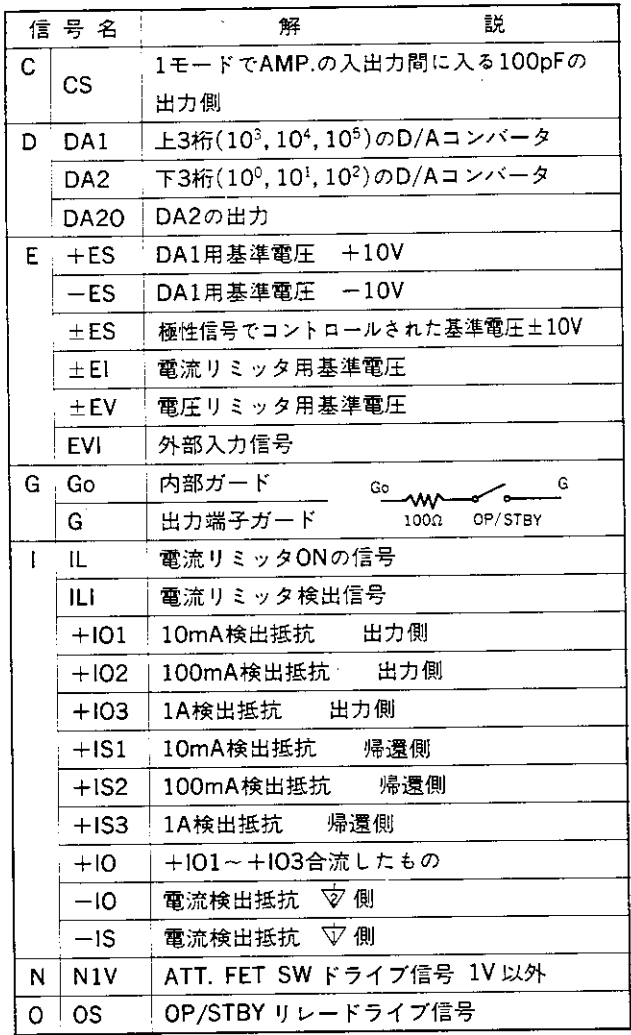 信号名 解説
C CS 1モードでAMP.の入出力間に入る100pFの
出力側
D DA1 上3桁(10³, 10⁴, 10⁵)のD/Aコンバータ
DA2 下3桁(10⁰, 10¹, 10²)のD/Aコンバータ
DA2O DA2の出力
E +ES DA1用基準電圧 +10V
−ES DA1用基準電圧 −10V
±ES 極性信号でコントロールされた基準電圧±10V
±EI 電流リミッタ用基準電圧
±EV 電圧リミッタ用基準電圧
EVI 外部入力信号
G Go 内部ガード Go G
G 出力端子ガード 100Ω OP/STBY
I IL 電流リミッタONの信号
ILI 電流リミッタ検出信号
+IO1 10mA検出抵抗 出力側
+IO2 100mA検出抵抗 出力側
+IO3 1A検出抵抗 出力側
+IS1 10mA検出抵抗 帰還側
+IS2 100mA検出抵抗 帰還側
+IS3 1A検出抵抗 帰還側
+IO +IO1~+IO3合流したもの
−IO 電流検出抵抗 2 側
−IS 電流検出抵抗 1 側
N N1V ATT. FET SW ドライブ信号 1V以外
O OS OP/STBY リレードライブ信号